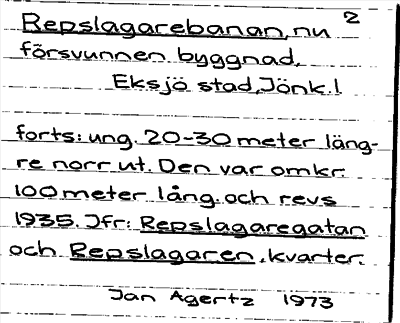 2
Repslagarebanan, nu
försvunnen byggnad.
Eksjö stad, Jönk. l
forts: ung. 20-30 meter läng-
re norr ut. Den var omkr.
100 meter lång. och revs
1935. Jfr: Repslagaregatan
och Repslagaren, kvarter.
Jan Agertz 1973